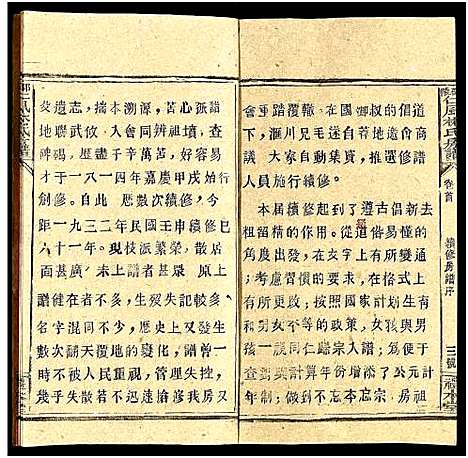 會重蹈覆轍、在國卿叔的倡道
下、滙川兄毛遂自
商議、人員迅速召開修譜
人員施行續修。
本屆續修是在遵古倡新去
粗留精的原則下、有所變通
角度出發、從道義上、易於
;考慮習慣的使用、在格式上
有所更改、按照國家計划生育
和男女平等的政策、女孩與男
孩一視同仁錄入譜;為便于考
查與共同計算年份、增了公元計
年制、為了永不忘本忘宗、房祖
仁風林氏房譜
卷首
續修房譜序
三號
父遺志、揣本溯源、苦心振譜
地聯武攸、入會同辨祖墳、查
碑碣、歷盡千辛萬苦、好容易
才于一八一四年嘉慶甲戌始行
創修。自此 悉數次續修、今
距一九三二年民國壬申續修已
六十一年。現枝派繁榮、散居
面甚廣、未上譜者甚眾、原上
譜健在者不多、生歿失記較多、
名字混同、歷史上又發生
數次翻天覆地的變化、譜曾一
時不被人民重視、管理失控、
幾乎失散若不迅速搶救我房又